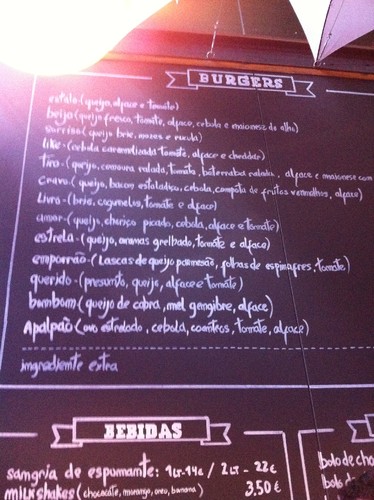 BURGERS
estalo-(queijo, alface e tomate)
beijo-(queijo fresco, tomate, alface, cebola e maionese de alho)
sorriso-(queijo brie, nozes e rúcula)
like-(cebola caramelizada tomate, alface e cheddar)
tiro-(queijo, cenoura ralada, tomate, beterraba ralada, alface e maionese com
cravo-(queijo, bacon estaladiço, cebola, compota de frutos vermelhos, alface)
livro-(brie, cogumelos, tomate e alface)
amor-(queijo, chouriço picado, cebola, alface e tomate)
estrela-(queijo, ananas grelhado, tomate e alface)
emporrão-(Lascas de queijo parmesão, folhas de espinafres, tomate)
querido-(presunto, queijo, alface e tomate)
bombom(queijo de cabra, mel gengibre, alface)
Apalpão(ovo estrelado, cebola, coentros, tomate, alface)
ingrediente extra
BEBIDAS
sangria de espumante: 1LT-14€ / 2LT - 22€
milkshakes (chocolate, morango, oreo, banana) 3.50€
bolo de cho
bolo d